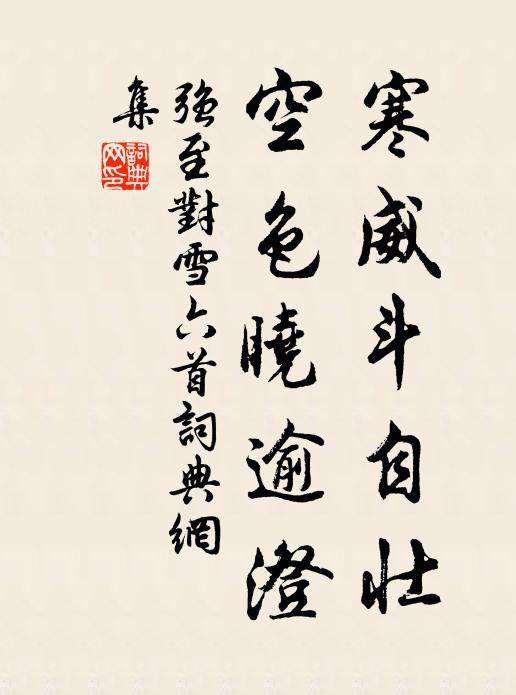 寒威斗自壯
空色曉逾澄
強至對雪六首詞典網
集
詞典
网印